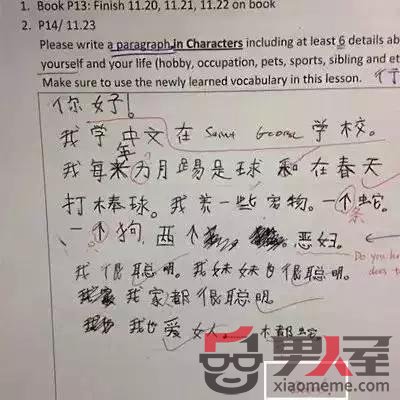 1. Book P13: Finish 11.20, 11.21, 11.22 on book
2. P14/ 11.23
Please write a paragraph In Characters including at least 6 details ab
yourself and your life (hobby, occupation, pets, sports, sibling and et
Make sure to use the newly learned vocabulary in this lesson.
你好!
我学中文在 Saint George 学校。
年
我每为月踢是球和在春天
打棒球。我养一些宠物。一个蛇。
条
一个狗 两个 恶妇。
Do you
does
我很聪明。我妹妹也很聪明。
我家都很聪明。
我也爱女人 都蛇
男人屋
xiaomeme.com